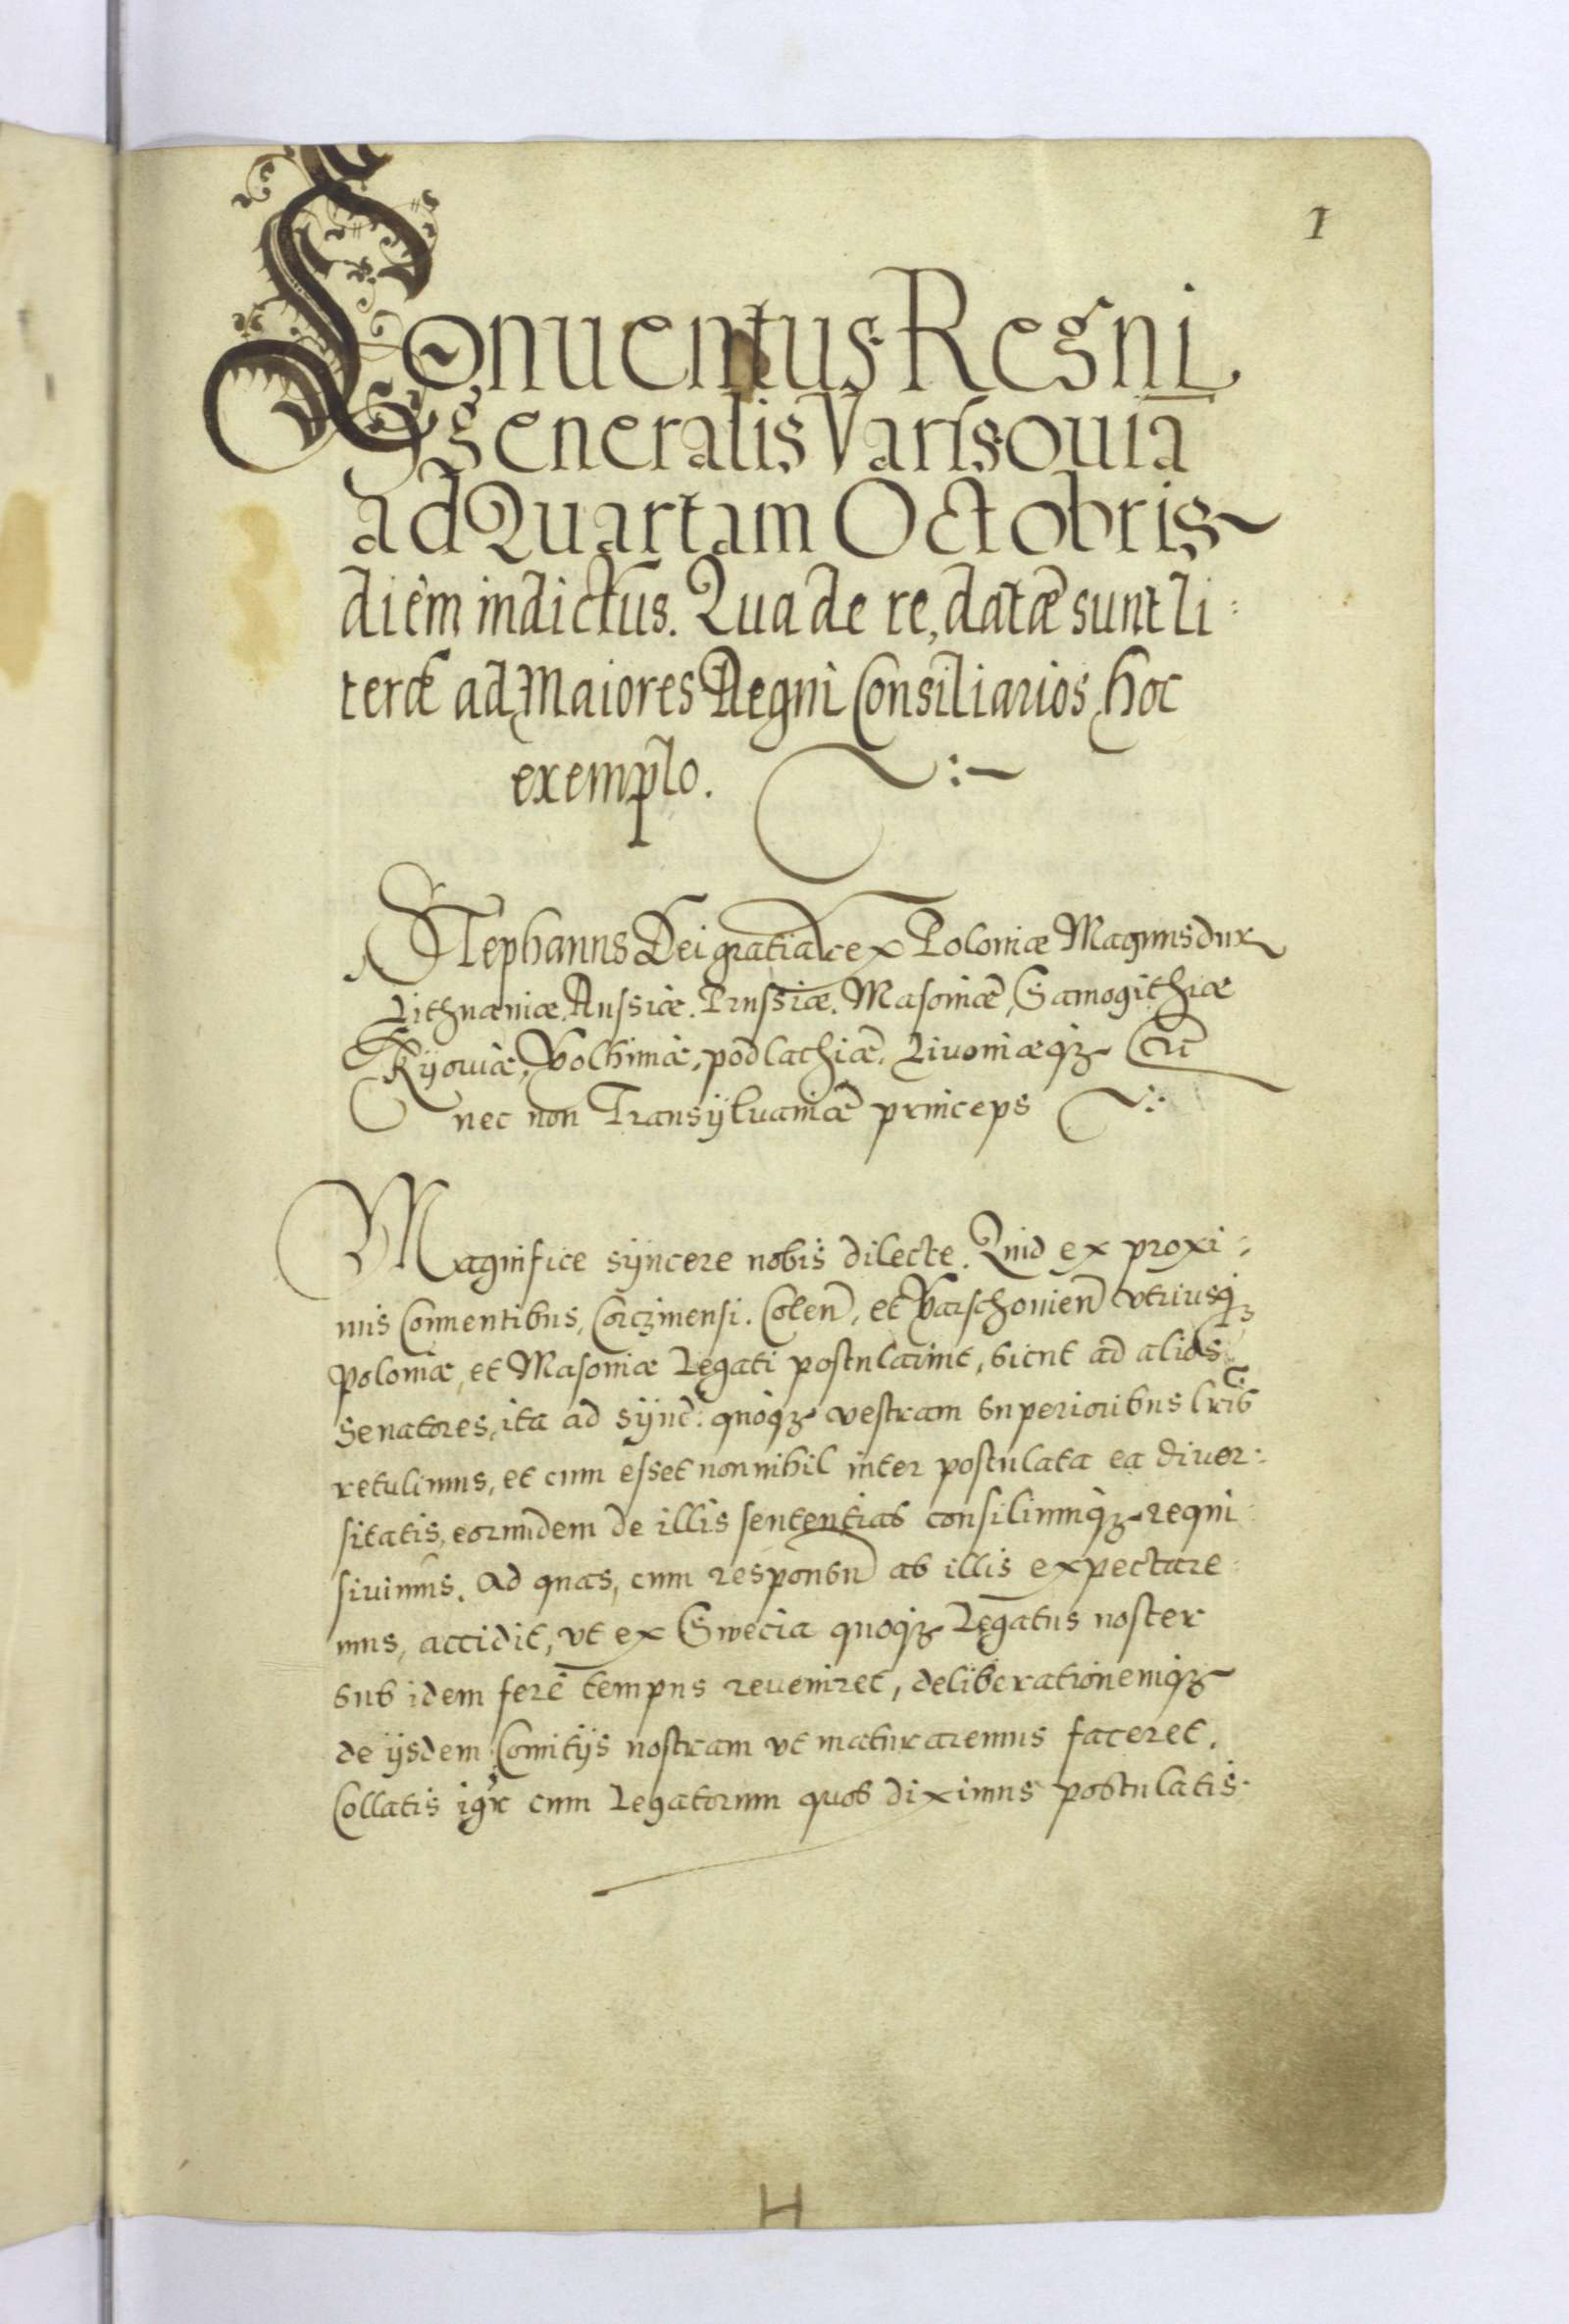 1
Conuentus Regni
generalis Varssouia
ad Quartam Octobris
diem indictus. Qua de re, datæ sunt li:
teræ ad Maiores Regni Consiliarios hoc
exemplo.
Stephanus Dei gratia rex Poloniæ Magnus dux
Lithuaniæ, Russiæ. Prussiæ. Masouiæ, Samogithiæ
Kijouiæ, Volhiniæ, podlachiæ, Liuoniæq₃
nec non Transÿluaniæ princeps
Magnifice sÿncere nobis dilecte. Quid ex proxi:
mis Conuentibus, Corczinensi. Colen, et Varschouien vtriusq₃
Poloniæ, et Masouiæ Legati postularint, sicut ad alios
Senatores, ita ad sÿnc: quoq₃ vestram superioribus lris
retulimus, et cum esset nonnihil inter postulata ea diuer:
sitatis, eorundem de illis sententias consiliumq₃ regni
siuimus. Ad quas, cum responsu ab illis expectare:
mus, accidit, vt ex Swecia quoq₃ Legatus noster
sub idem ferè tempus reueniret, deliberationemq₃
de ijsdem Comitijs nostram vt maturaremus faceret.
Collatis igr cum Legatorum quos diximus postulatis.
H